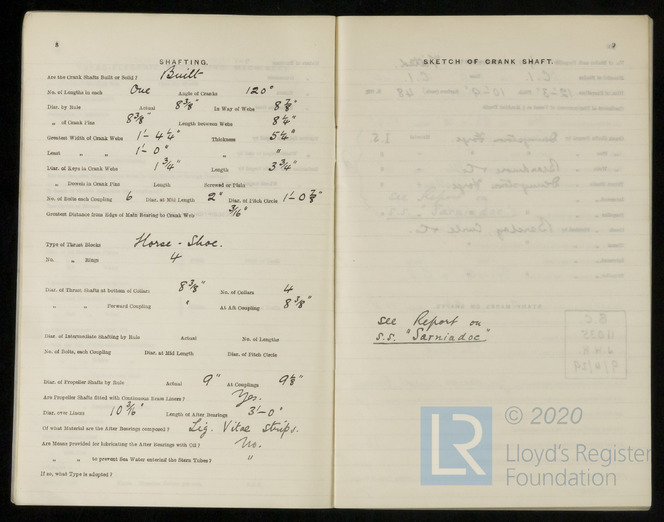 8
SHAFTING.
Are the Crank Shafts Built or Solid? Built
No. of Lengths in each One Angle of Cranks 120°
Diar. by Rule Actual 8 3/8" In Way of Webs 8 7/8"
" of Crank Pins 8 3/8" Length between Webs 8 1/4"
Greatest Width of Crank Webs 1'- 4 1/4" Thickness 5 1/4"
Least " " 1'- 0" " "
Diar. of Keys in Crank Webs 1 3/4" Length 3 3/4"
" Dowels in Crank Pins Length Screwed or Plain
No. of Bolts each Coupling 6 Diar. at Mid Length 2" Diar. of Pitch Circle 1'- 0 7/8"
Greatest Distance from Edge of Main Bearing to Crank Web 3/16"
Type of Thrust Blocks Horse-Shoe.
No. " Rings 4
Diar. of Thrust Shafts at bottom of Collars 8 3/8" No. of Collars 4
" " Forward Coupling " At Aft Coupling 8 3/8"
Diar. of Intermediate Shafting by Rule Actual No. of Lengths
No. of Bolts, each Coupling Diar. at Mid Length Diar. of Pitch Circle
Diar. of Propeller Shafts by Rule Actual 9" At Couplings 9 1/8"
Are Propeller Shafts fitted with Continuous Brass Liners? Yes.
Diar. over Liners 10 3/16" Length of After Bearings 3'-0"
Of what Material are the After Bearings composed? Lig. Vitae strips.
Are Means provided for lubricating the After Bearings with Oil? No.
" " to prevent Sea Water entering the Stern Tubes? "
If so, what Type is adopted?
9
SKETCH OF CRANK SHAFT.
see Report on
s.s. "Sarniadoc"
© 2020
LR
Lloyd's Register
Foundation